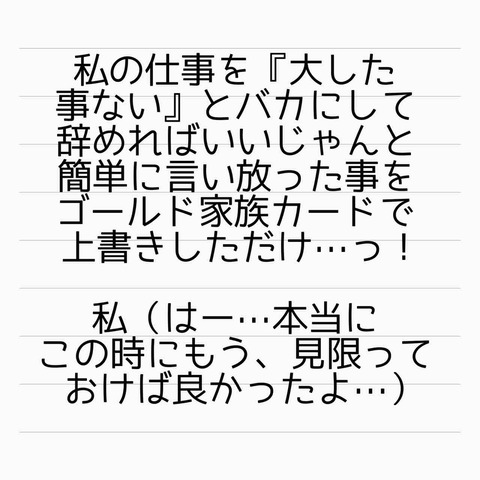 私の仕事を『大した
事ない』とバカにして
辞めればいいじゃんと
簡単に言い放った事を
ゴールド家族カードで
上書きしただけ…っ！
私（はー…本当に
この時にもう、見限って
おけば良かったよ…）